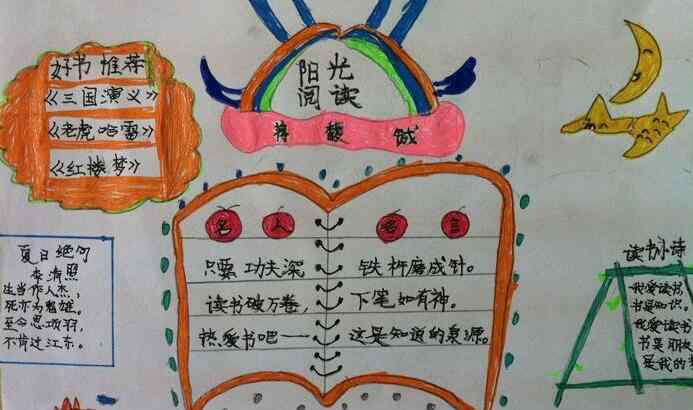 好书推荐
《三国演义》
《老虎哈雷》
《红楼梦》
阳光
阅读
名人名言
只要功夫深， 铁杵磨成针。
读书破万卷， 下笔如有神。
热爱书吧—— 这是知道的泉源。
夏日绝句
李清照
生当作人杰，
死亦为鬼雄。
至今思项羽，
不肯过江东。
读书小诗
我爱读书，
书是知识。
我爱读书
书是朋
是我的